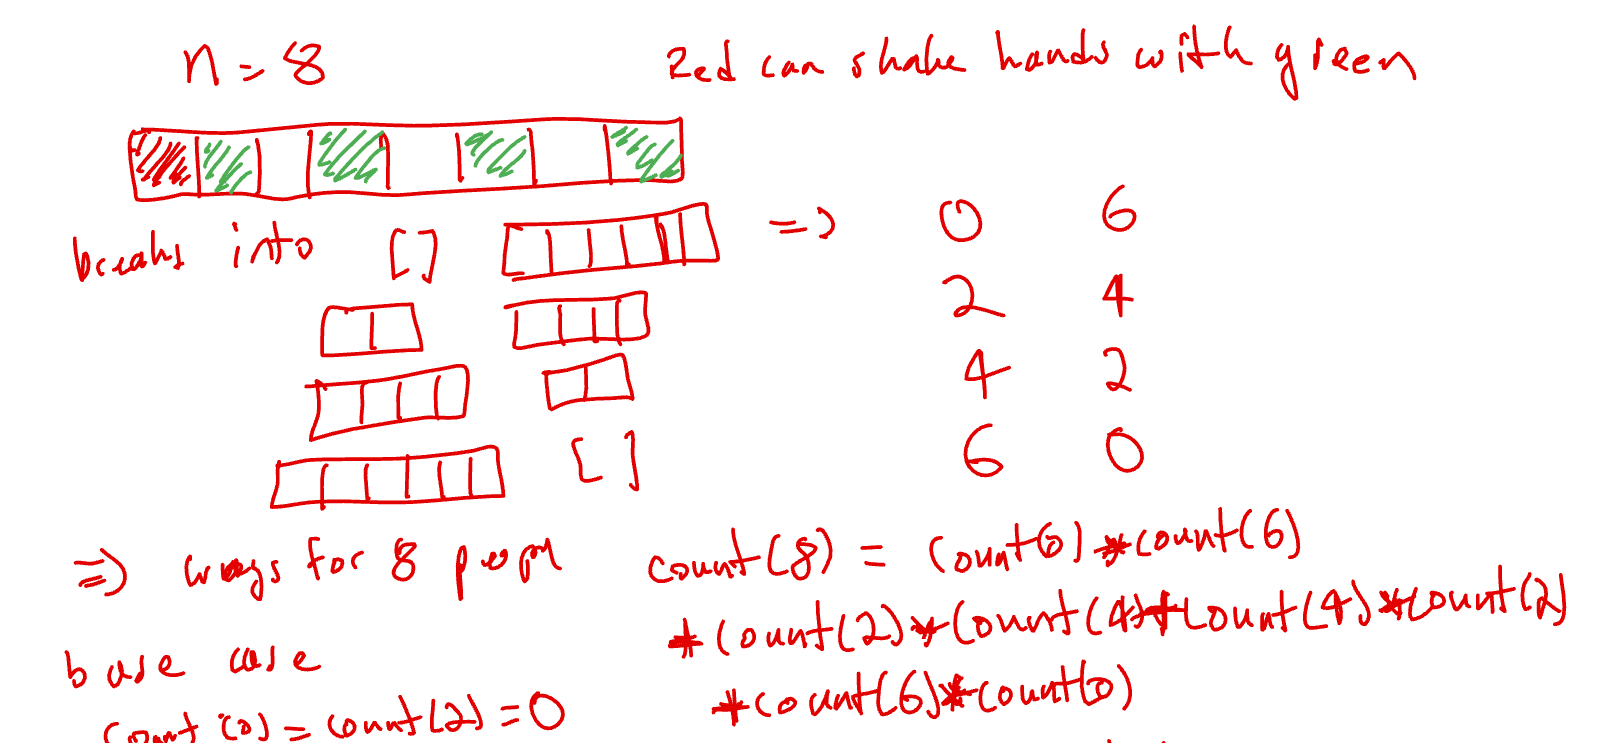 n = 8
Red can shake hands with green
breaks into [] [] => 0 6
2 4
4 2
6 0
=> ways for 8 peopl
count(8) = count(0) * count(6)
* count(2) * count(4) * count(4) * count(2)
* count(6) * count(0)
base case
count(0) = count(2) = 0